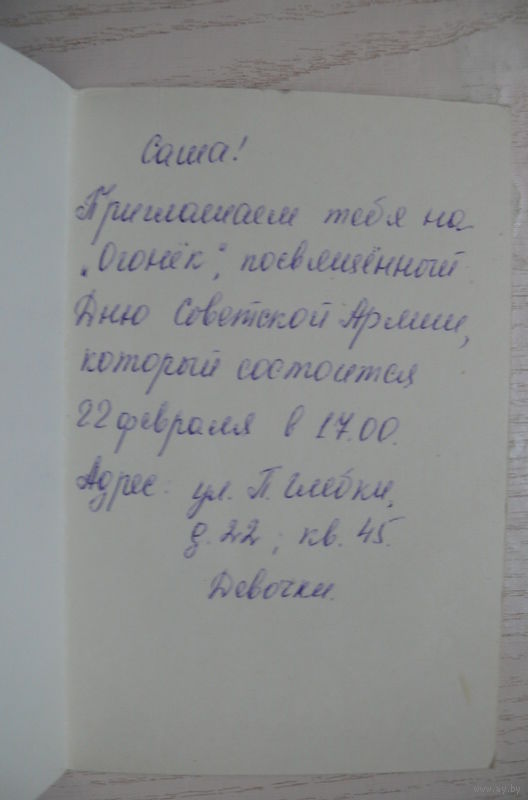 Саша!
Приглашаем тебя на
"Огонёк", посвящённый
Дню Советской Армии,
который состоится
22 февраля в 17.00.
Адрес: ул. П. Глебки,
д. 22; кв. 45.
Девочки.
www.ay.by